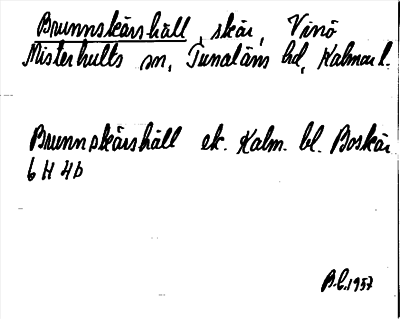 Brunnskärshäll, skär, Vinö
Misterhults sn, Tunaläns hd, Kalmar l.
Brunnskärshäll ek. Kalm. bl. Boskär
6 H 4b
B.C. 1957